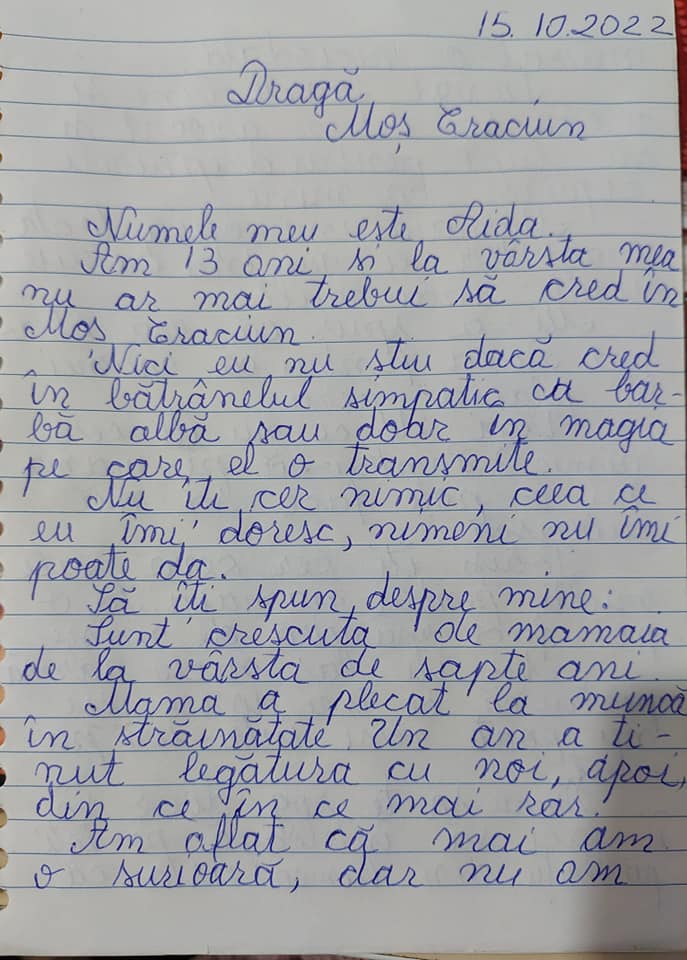 15.10.2022
Dragă
Moș Crăciun
Numele meu este Aida.
Am 13 ani si la vârsta mea
nu ar mai trebui să cred în
Moș Crăciun.
Nici eu nu știu dacă cred
în bătrânelul simpatic cu bar-
bă albă sau doar in magia
pe care el o transmite.
Nu îți cer nimic, ceea ce
eu îmi doresc, nimeni nu îmi
poate da.
Să îți spun despre mine:
Sunt crescuta de mamaia
de la vârsta de șapte ani.
Mama a plecat la muncă
în străinătate. Un an a ti-
nut legătura cu noi, apoi,
din ce în ce mai rar.
Am aflat că mai am
o surioară, dar nu am